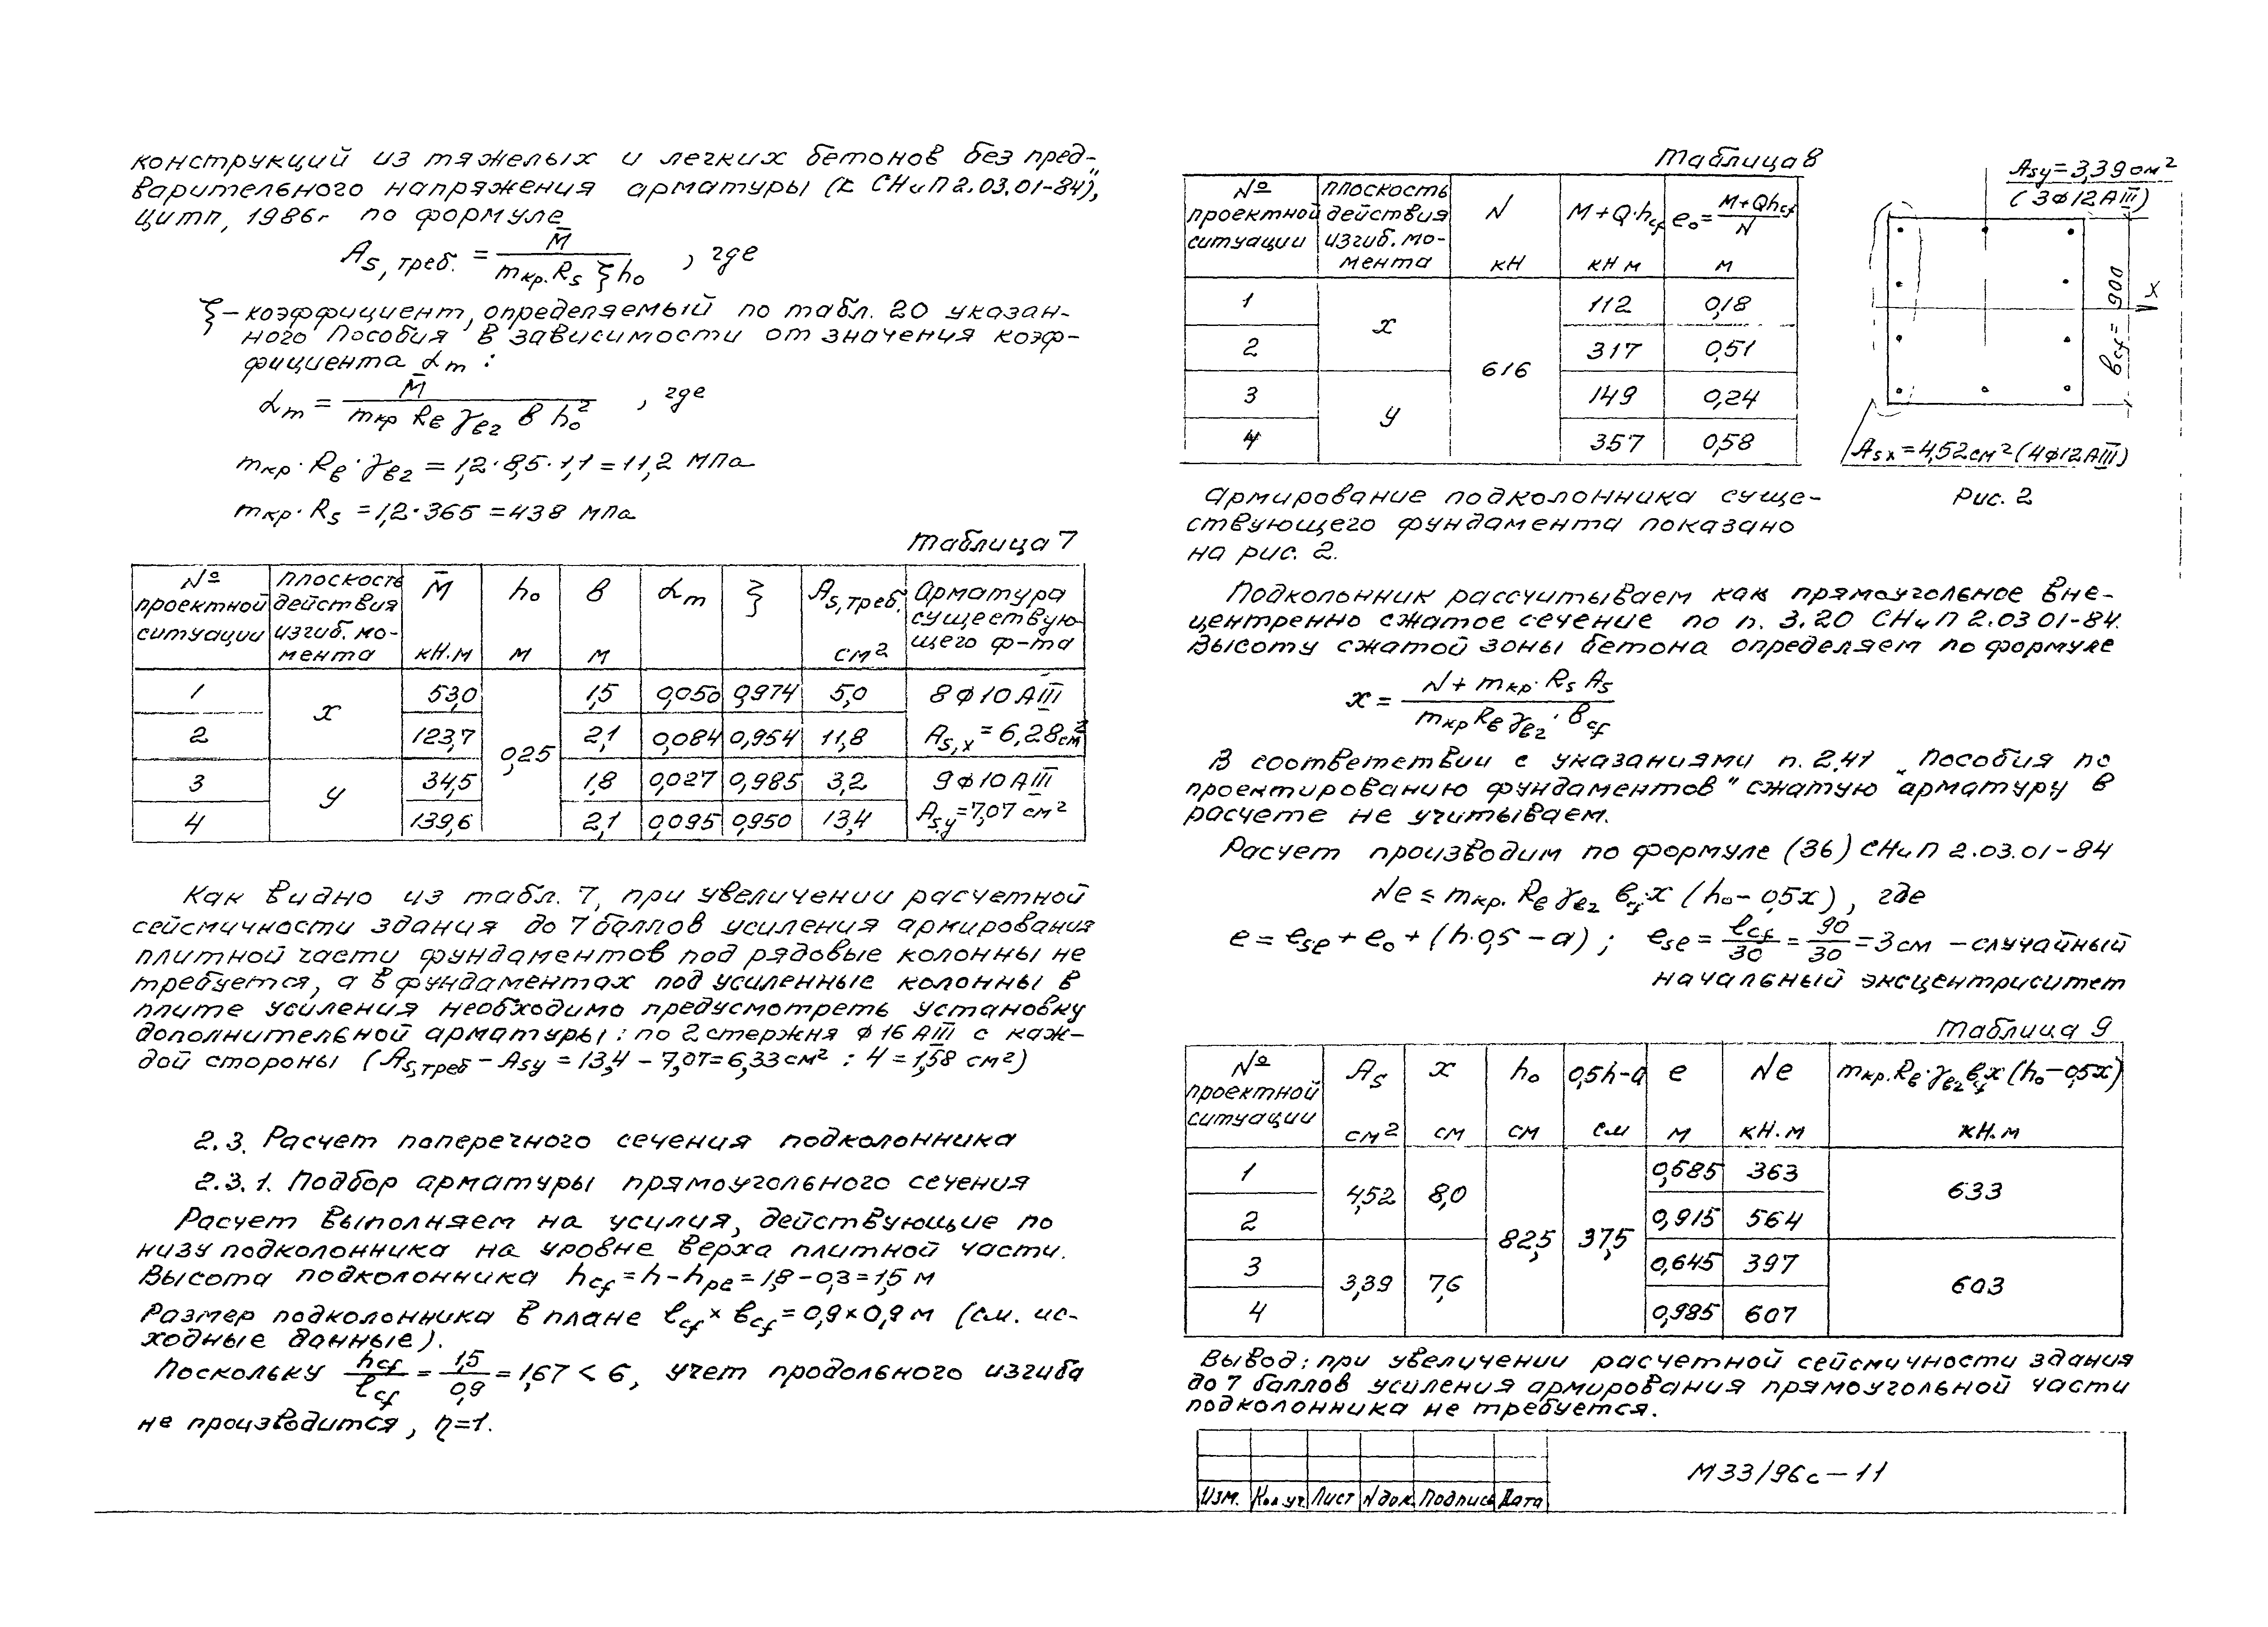 конструкций из тяжелых и легких бетонов без пред-
варительного напряжения арматуры (к СНиП 2.03.01-84)",
ЦИТП, 1986г по формуле
As,треб. = M̄ / (mкр. Rs ξ h₀) , где
ξ – коэффициент, определяемый по табл. 20 указан-
ного Пособия в зависимости от значения коэф-
фициента αm :
αm = M̄ / (mкр Rв γв2 в h₀²) , где
mкр · Rв · γв2 = 1,2 · 8,5 · 1,1 = 11,2 МПа
mкр · Rs = 1,2 · 365 = 438 МПа
Таблица 7
№ проектной ситуации | плоскость действия изгиб. мо-мента | M̄ кН.м | h₀ м | в м | αm | ξ | As,треб. см² | Арматура существую-щего ф-та
1 | x | 53,0 | 0,25 | 1,5 | 0,050 | 0,974 | 5,0 | 8ф10АIII
2 | 123,7 | 2,1 | 0,084 | 0,954 | 11,8 | As,x = 6,28см²
3 | y | 34,5 | 1,8 | 0,027 | 0,985 | 3,2 | 9ф10АIII
4 | 139,6 | 2,1 | 0,095 | 0,950 | 13,4 | Asy = 7,07 см²
Как видно из табл. 7, при увеличении расчетной
сейсмичности здания до 7 баллов усиления армирования
плитной части фундаментов под рядовые колонны не
требуется, а в фундаментах под усиленные колонны в
плите усиления необходимо предусмотреть установку
дополнительной арматуры: по 2 стержня ф16АIII с каж-
дой стороны (As,треб – Asy = 13,4 – 7,07 = 6,33 см² : 4 = 1,58 см²)
2.3. Расчет поперечного сечения подколонника
2.3.1. Подбор арматуры прямоугольного сечения
Расчет выполняем на усилия, действующие по
низу подколонника на уровне верха плитной части.
Высота подколонника hcf = h – hpe = 1,8 – 0,3 = 1,5 м
Размер подколонника в плане ℓcf × вcf = 0,9 × 0,9 м (см. ис-
ходные данные).
Поскольку hcf/ℓcf = 1,5/0,9 = 1,67 < 6, учет продольного изгиба
не производится, η=1.
Таблица 8
№ проектной ситуации | плоскость действия изгиб. мо-мента | N кН | M+Q·hcf кН м | e₀ = (M+Qhcf)/N м
1 | x | 616 | 112 | 0,18
2 | 317 | 0,51
3 | y | 149 | 0,24
4 | 357 | 0,58
Asy = 3,39 см²
(3ф12АIII)
вcf = 900
X
Asx = 4,52см² (4ф12АIII)
Рис. 2
Армирование подколонника суще-
ствующего фундамента показано
на рис. 2.
Подколонник рассчитываем как прямоугольное вне-
центренно сжатое сечение по п. 3.20 СНиП 2.03 01-84.
Высоту сжатой зоны бетона определяем по формуле
x = (N + mкр. Rs As) / (mкр Rв γв2 · вcf)
В соответствии с указаниями п. 2,41 „Пособия по
проектированию фундаментов" сжатую арматуру в
расчете не учитываем.
Расчет производим по формуле (36) СНиП 2.03.01-84
Ne ≤ mкр. Rв γв2 вcf·x (h₀ – 0,5x) , где
e = ese + e₀ + (h·0,5 – a) ; ese = ℓcf/30 = 90/30 = 3см – случайный
начальный эксцентриситет
Таблица 9
№ проектной ситуации | As см² | x см | h₀ см | 0,5h-a см | e м | Ne кН.м | mкр.Rв·γв2 вcf x (h₀–0,5x) кН.м
1 | 4,52 | 8,0 | 82,5 | 37,5 | 0,585 | 363 | 633
2 | 0,915 | 564
3 | 3,39 | 7,6 | 0,645 | 397 | 603
4 | 0,985 | 607
Вывод: при увеличении расчетной сейсмичности здания
до 7 баллов усиления армирования прямоугольной части
подколонника не требуется.
Изм. | Кол.уч. | Лист | N док. | Подпись | Дата
М33/96с – 11